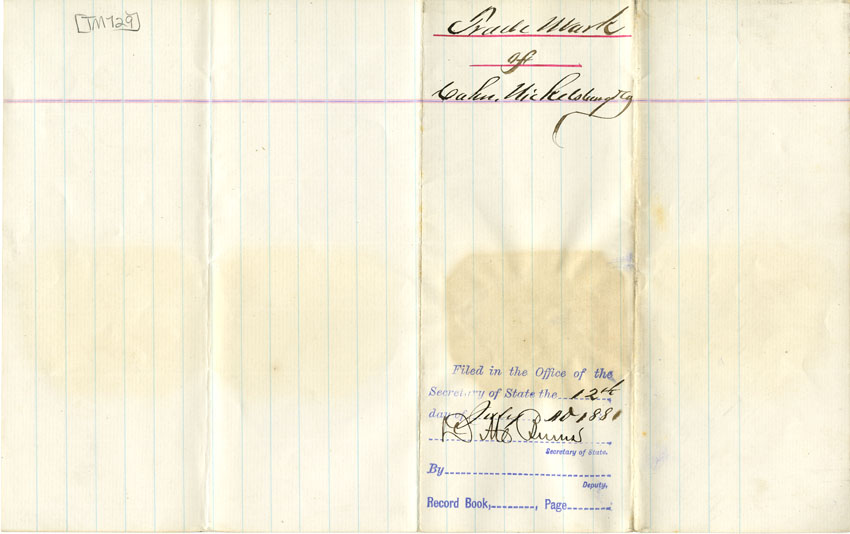 [TM729]
Trade Mark
of
Cahn, Nickelsburg & Co
Filed in the Office of the
Secretary of State the 12th
day of July AD 1881
D M Burns
Secretary of State.
By
Deputy.
Record Book, , Page